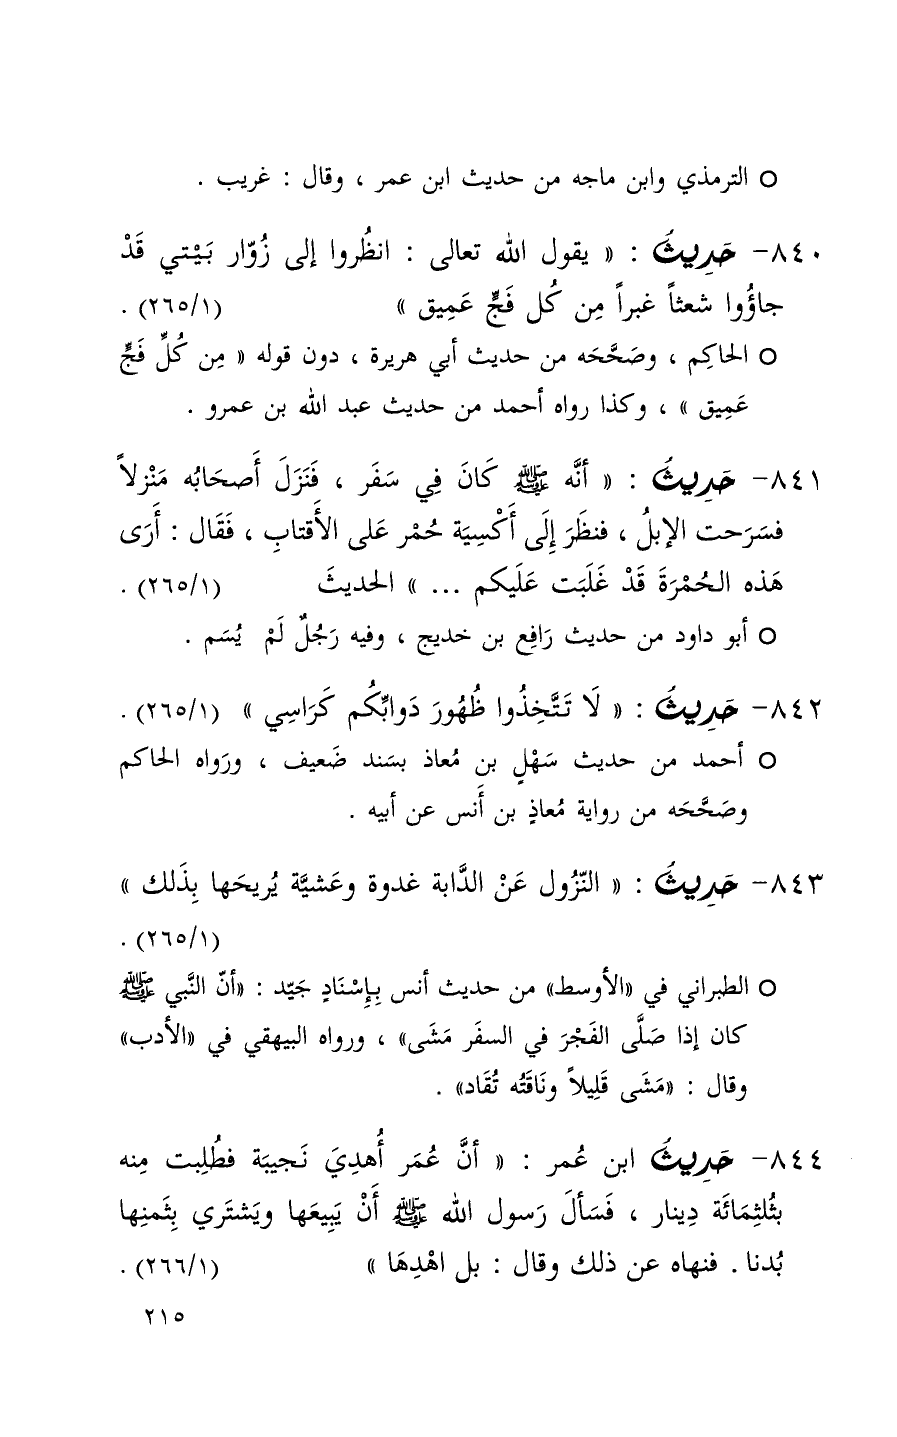 ○ الترمذي وابن ماجه من حديث ابن عمر ، وقال : غريب .
٨٤٠- حَدِيثُ : « يقول الله تعالى : انظُروا إلى زُوّار بَيْتي قَدْ
جاؤُوا شعثاً غبراً مِن كُل فَجٍّ عَمِيق » (٢٦٥/١) .
○ الحاكِم ، وصَحَّحَه من حديث أبي هريرة ، دون قوله « مِن كُلِّ فَجٍّ
عَمِيق » ، وكذا رواه أحمد من حديث عبد الله بن عمرو .
٨٤١- حَدِيثُ : « أنَّه ﷺ كَانَ فِي سَفَر ، فَنَزَلَ أَصحَابُه مَنْزلاً
فسَرَحت الإبلُ ، فنظَرَ إِلَى أَكْسِيَة حُمْر عَلى الأَقتابِ ، فَقَال : أَرَى
هَذه الحُمْرَةَ قَدْ غَلَبَت عَلَيكم ... » الحديثَ (٢٦٥/١) .
○ أبو داود من حديث رَافِع بن خديج ، وفيه رَجُلٌ لَمْ يُسَم .
٨٤٢- حَدِيثُ : « لَا تَتَّخِذُوا ظُهُورَ دَوابِّكُم كَرَاسِي » (٢٦٥/١) .
○ أحمد من حديث سَهْلٍ بن مُعاذ بسَند ضَعيف ، ورَواه الحاكم
وصَحَّحَه من رواية مُعاذٍ بن أَنس عن أبيه .
٨٤٣- حَدِيثُ : « النّزُول عَنْ الدَّابة غدوة وعَشيَّة يُريحَها بِذَلك »
(٢٦٥/١) .
○ الطبراني في «الأوسط» من حديث أنس بِإِسْنَادٍ جَيّد : «أنّ النَّبي ﷺ
كان إذا صَلَّى الفَجْرَ في السفَر مَشَى» ، ورواه البيهقي في «الأدب»
وقال : «مَشَى قَلِيلاً ونَاقَتُه تُقَاد» .
٨٤٤- حَدِيثُ ابن عُمر : « أنَّ عُمَر أُهدِيَ نَجيبَة فطُلِبت مِنه
بثُلثِمَائَة دِينار ، فَسَألَ رَسول الله ﷺ أَنْ يَبِيعَها ويَشتَري بِثَمنِها
بُدنا . فنهاه عن ذلك وقال : بل اهْدِهَا » (٢٦٦/١) .
٢١٥